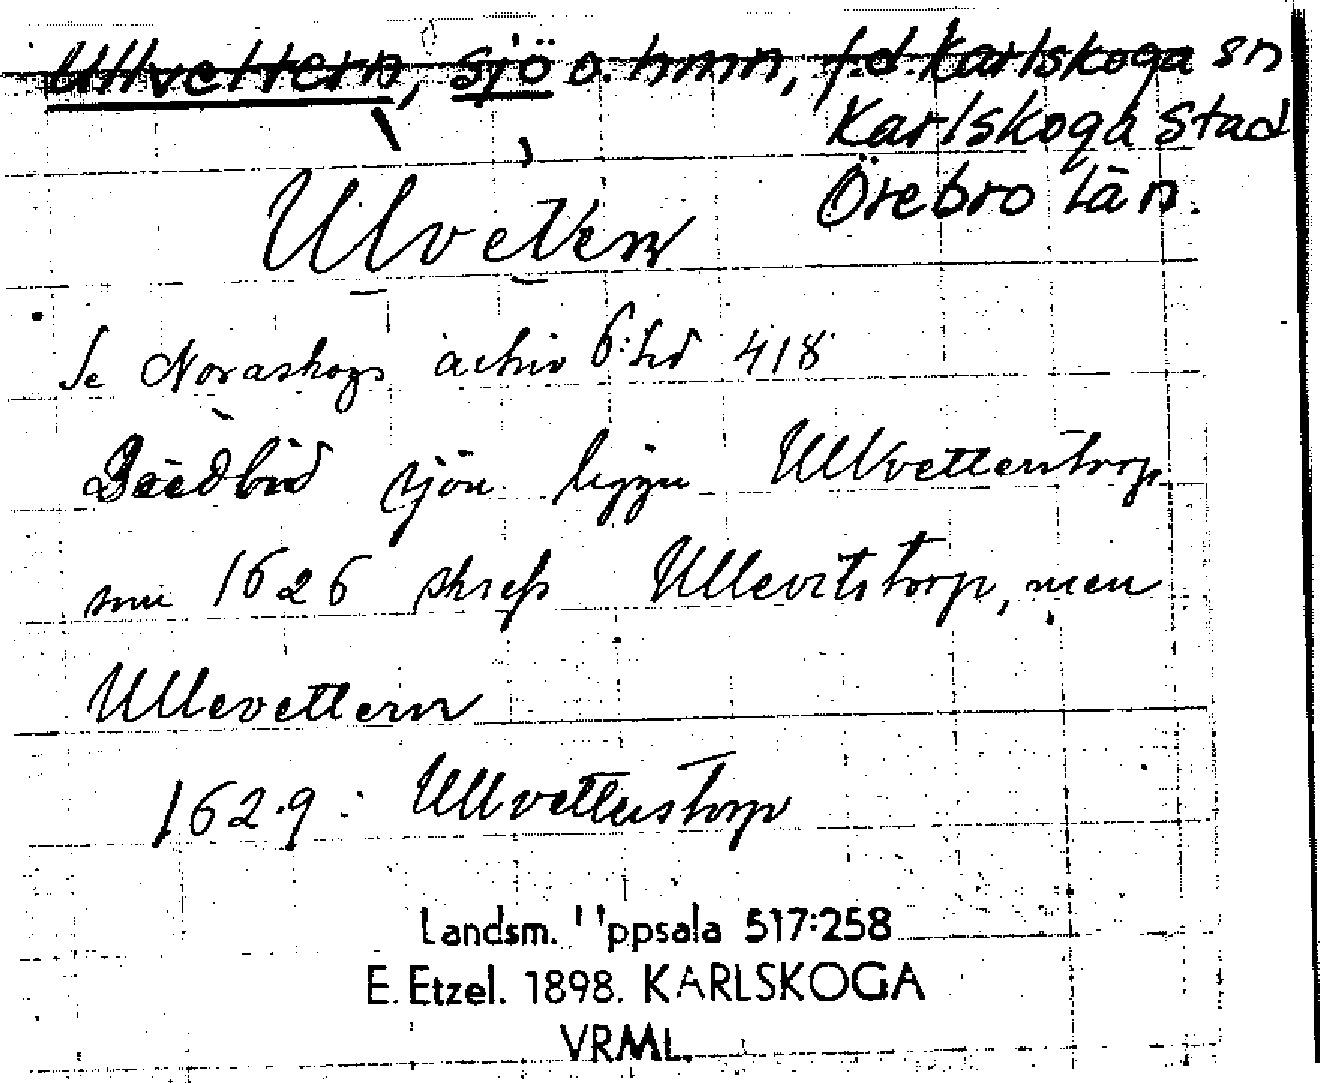 Ullvettern, sjö o. hmn, f.d. Karlskoga sn
Karlskoga stad
Örebro län.
Ulvettern
Se Noraskogs arkiv 6: 418
Bredvid sjön ligger Ullvetterstorp
som 1626 skrefs Ullevitstorp, men
Ullevettern
1629: Ullvetterstorp
Landsm. Uppsala 517:258
E. Etzel. 1898. KARLSKOGA
VRML.